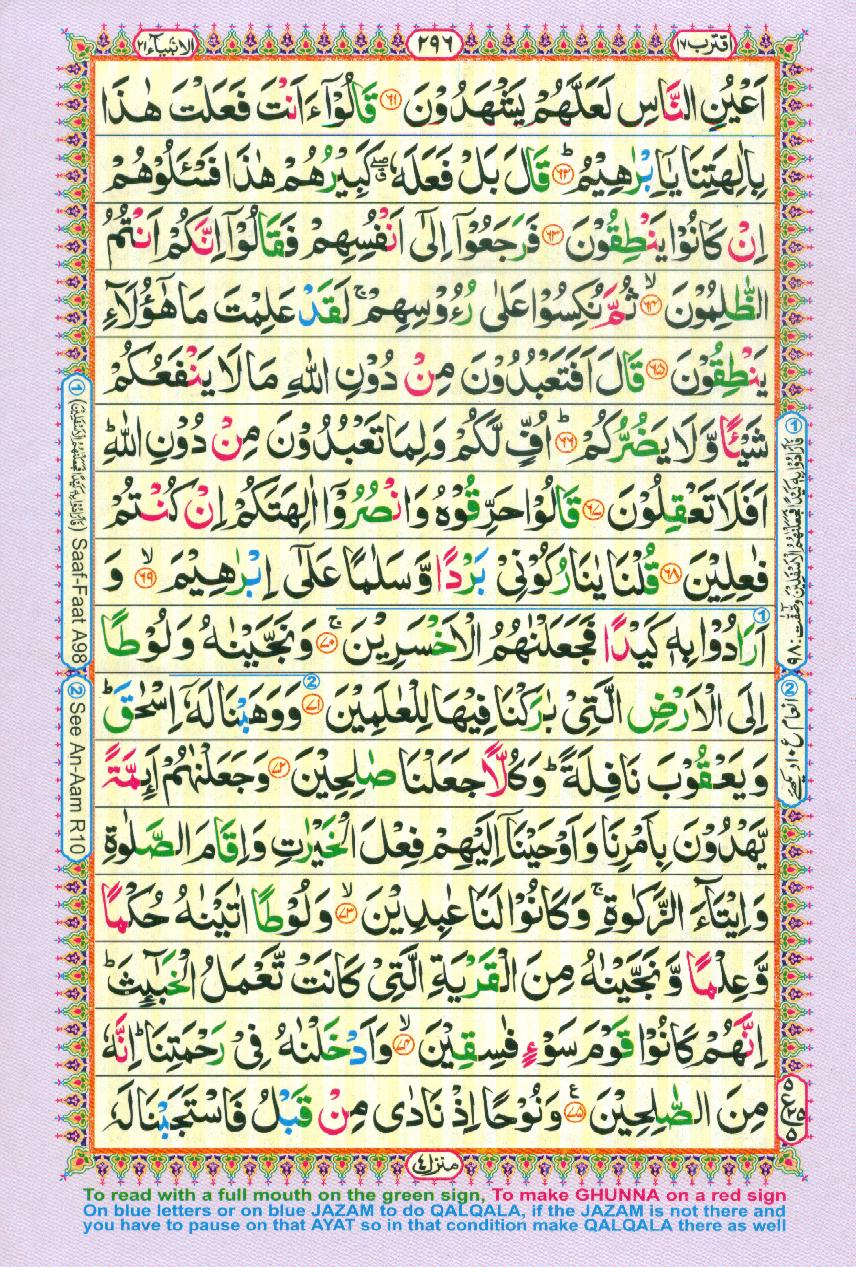 اقترب ١٧
٢٩٦
الانبیآء ٢١
اَعْیُنِ النَّاسِ لَعَلَّهُمْ یَشْهَدُوْنَ ﴿٦١﴾ قَالُوْۤا ءَاَنْتَ فَعَلْتَ هٰذَا
بِاٰلِهَتِنَا یٰۤاِبْرٰهِیْمُ ؕ﴿٦٢﴾ قَالَ بَلْ فَعَلَهٗ ۖۗ كَبِیْرُهُمْ هٰذَا فَسْـَٔلُوْهُمْ
اِنْ كَانُوْا یَنْطِقُوْنَ ﴿٦٣﴾ فَرَجَعُوْۤا اِلٰۤی اَنْفُسِهِمْ فَقَالُوْۤا اِنَّكُمْ اَنْتُمُ
الظّٰلِمُوْنَ ۙ﴿٦٤﴾ ثُمَّ نُكِسُوْا عَلٰی رُءُوْسِهِمْ ۚ لَقَدْ عَلِمْتَ مَا هٰۤؤُلَآءِ
یَنْطِقُوْنَ ﴿٦٥﴾ قَالَ اَفَتَعْبُدُوْنَ مِنْ دُوْنِ اللّٰهِ مَا لَا یَنْفَعُكُمْ
شَیْـًٔا وَّ لَا یَضُرُّكُمْ ؕ﴿٦٦﴾ اُفٍّ لَّكُمْ وَ لِمَا تَعْبُدُوْنَ مِنْ دُوْنِ اللّٰهِ ؕ
اَفَلَا تَعْقِلُوْنَ ﴿٦٧﴾ قَالُوْا حَرِّقُوْهُ وَ انْصُرُوْۤا اٰلِهَتَكُمْ اِنْ كُنْتُمْ
فٰعِلِیْنَ ﴿٦٨﴾ قُلْنَا یٰنَارُ كُوْنِیْ بَرْدًا وَّ سَلٰمًا عَلٰۤی اِبْرٰهِیْمَ ۙ﴿٦٩﴾ وَ
اَرَادُوْا بِهٖ كَیْدًا فَجَعَلْنٰهُمُ الْاَخْسَرِیْنَ ۚ﴿٧٠﴾ وَ نَجَّیْنٰهُ وَ لُوْطًا
اِلَی الْاَرْضِ الَّتِیْ بٰرَكْنَا فِیْهَا لِلْعٰلَمِیْنَ ﴿٧١﴾ وَ وَهَبْنَا لَهٗۤ اِسْحٰقَ ؕ
وَ یَعْقُوْبَ نَافِلَةً ؕ وَ كُلًّا جَعَلْنَا صٰلِحِیْنَ ﴿٧٢﴾ وَ جَعَلْنٰهُمْ اَىِٕمَّةً
یَّهْدُوْنَ بِاَمْرِنَا وَ اَوْحَیْنَاۤ اِلَیْهِمْ فِعْلَ الْخَیْرٰتِ وَ اِقَامَ الصَّلٰوةِ
وَ اِیْتَآءَ الزَّكٰوةِ ۚ وَ كَانُوْا لَنَا عٰبِدِیْنَ ۙ﴿٧٣﴾ وَ لُوْطًا اٰتَیْنٰهُ حُكْمًا
وَّ عِلْمًا وَّ نَجَّیْنٰهُ مِنَ الْقَرْیَةِ الَّتِیْ كَانَتْ تَّعْمَلُ الْخَبٰٓىِٕثَ ؕ
اِنَّهُمْ كَانُوْا قَوْمَ سَوْءٍ فٰسِقِیْنَ ۙ﴿٧٤﴾ وَ اَدْخَلْنٰهُ فِیْ رَحْمَتِنَا ؕ اِنَّهٗ
مِنَ الصّٰلِحِیْنَ ﴿٧٥﴾ وَ نُوْحًا اِذْ نَادٰی مِنْ قَبْلُ فَاسْتَجَبْنَا لَهٗ
منزل ٤
① فَاَرَادُوْا بِهٖ كَیْدًا فَجَعَلْنٰهُمُ الْاَسْفَلِیْنَ وصٰفّٰت ٩٨
② انعام ع ١٠ دیکھیے
① (فَاَرَادُوْا بِهٖ كَیْدًا فَجَعَلْنٰهُمُ الْاَسْفَلِیْنَ) Saaf-Faat A98
② See An-Aam R 10
To read with a full mouth on the green sign, To make GHUNNA on a red sign
On blue letters or on blue JAZAM to do QALQALA, if the JAZAM is not there and
you have to pause on that AYAT so in that condition make QALQALA there as well